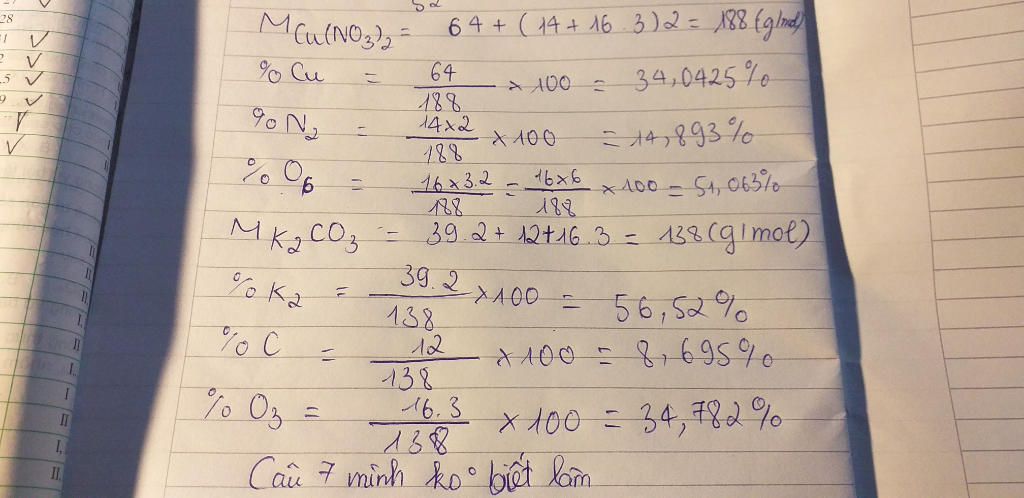 28
M Cu(NO3)2 = 64 + (14 + 16 . 3) 2 = 188 (g/mol)
% Cu = 64/188 x 100 = 34,0425%
% N2 = 14x2/188 x 100 = 14,893%
% O6 = 16x3.2/188 = 16x6/188 x 100 = 51,063%
M K2CO3 = 39.2 + 12 + 16.3 = 138 (g/mol)
% K2 = 39.2/138 x 100 = 56,52%
% C = 12/138 x 100 = 8,695%
% O3 = 16.3/138 x 100 = 34,782%
Câu 7 mình ko biết làm